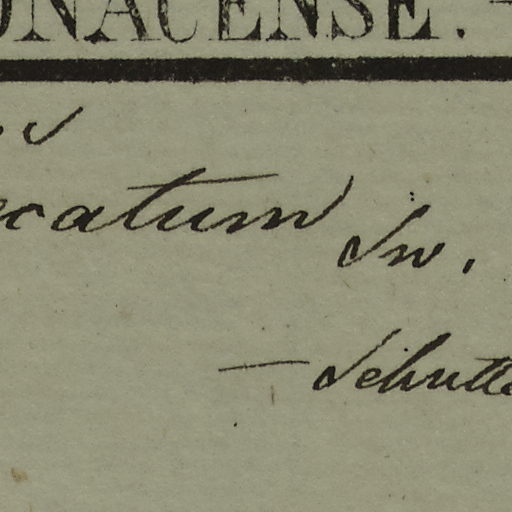 ONACENSE.
ecatum Sw.
— Schutte